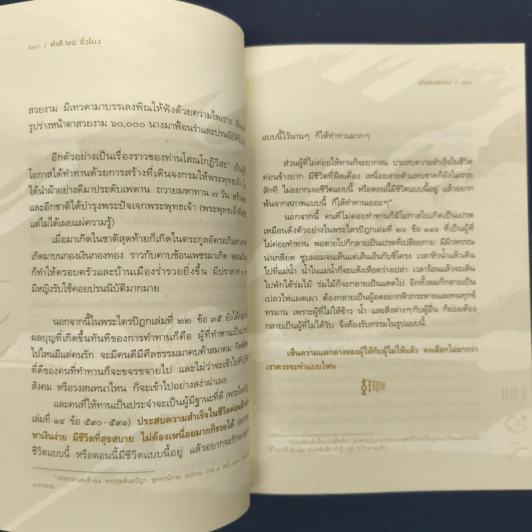 ๑๐ / ทำดี ๒๔ ชั่วโมง
สวยงาม มีเทวดามาบรรเลงพิณให้ฟังด้วยความไพเราะ
รูปร่างหน้าตาสวยงาม ๖๐,๐๐๐ นางมาฟ้อนรำและปรนนิบัติ
อีกตัวอย่างเป็นเรื่องราวของท่านโสณโกฏิวิสะ
โอกาสได้ทำทานด้วยการสร้างที่เดินจงกรมให้พระพุทธเจ้า
ได้นำผ้าอย่างดีมาประดับเพดาน ถวายมหาทาน ๗ วัน
และอีกชาติได้บำรุงพระปัจเจกพระพุทธเจ้า
แต่ไม่ได้เผยแผ่ความรู้)
เมื่อมาเกิดในชาติสุดท้ายก็เกิดในตระกูล
เกิดมาบนกองเงินกองทอง ราวกับคาบช้อนเพชรมาเกิด
ก็ทำให้ครอบครัวและบ้านเมืองร่ำรวยยิ่งขึ้น
มีหญิงรับใช้คอยปรนนิบัติมากมาย
นอกจากนี้ในพระไตรปิฎกเล่มที่ ๒๒ ข้อ ๓๕
ผลบุญที่เกิดขึ้นทันทีของการทำทานก็คือ ผู้ที่ทำทาน
ไปไหนมีแต่คนรัก จะมีคนดีมีศีลธรรมมาคบค้าสมาคม
ที่ดีของคนที่ทำทานก็จะขจรขจายไป และไม่ว่าจะเข้าไป
สังคม หรือวงสนทนาไหน ก็จะเข้าไปอย่างสง่าผ่าเผย
และคนที่ให้ทานเป็นประจำจะเป็นผู้มีฐานะที่ดี
เล่มที่ ๑๔ ข้อ ๕๙๐-๕๙๑) ประสบความสำเร็จในชีวิต
หาเงินง่าย มีชีวิตที่สุขสบาย ไม่ต้องเหนื่อยมากก็รวยได้
ชีวิตแบบนี้ หรือตอนนี้มีชีวิตแบบนี้อยู่ แล้วอยากจะรักษา
แบบนี้ไว้นานๆ ก็ให้ทำทานมากๆ
ส่วนผู้ที่ไม่ค่อยให้ทานก็จะยากจน ประสบความสำเร็จในชีวิต
ค่อนข้างยาก มีชีวิตที่ฝืดเคือง เหนื่อยสายตัวแทบขาดก็ยังไม่รวย
สักที ไม่อยากเจอชีวิตแบบนี้ หรือตอนนี้มีชีวิตแบบนี้อยู่ แล้วอยาก
พ้นจากสภาพแบบนี้ ก็ให้ทำทานเยอะๆ
นอกจากนี้ คนที่ไม่ค่อยทำทานก็มีโอกาสไปเกิดเป็นเปรต
เหมือนดังตัวอย่างในพระไตรปิฎกเล่มที่ ๒๖ ข้อ ๑๑๖ ที่เป็นผู้
ไม่ค่อยทำทาน พอตายไปก็กลายเป็นเปรตที่เปลือยกาย มีผิวพรรณ
น่าเกลียด ซูบผอมจนเห็นแต่เส้นเอ็นกับซี่โครง เวลาหิวน้ำแล้วเดิน
ไปที่แม่น้ำ น้ำในแม่น้ำก็จะแห้งเหือดว่างเปล่า เวลาร้อนแล้วจะเดิน
ไปพักใต้ร่มไม้ ร่มไม้ก็จะกลายเป็นแดดไป อีกทั้งลมก็กลายเป็น
เปลวไฟแผดเผา ต้องกลายเป็นผู้อดอยากหิวกระหายและทนทุกข์
ทรมาน เพราะผู้ที่ไม่ให้ข้าว น้ำ และสิ่งต่างๆ กับผู้อื่น ก็ย่อมต้อง
กลายเป็นผู้ที่ไม่ได้รับ จึงต้องรับกรรมในรูปแบบนี้
เห็นความแตกต่างของผู้ให้กับผู้ไม่ให้แล้ว คงเลือกไม่ยากว่า
เราควรจะทำแบบไหน